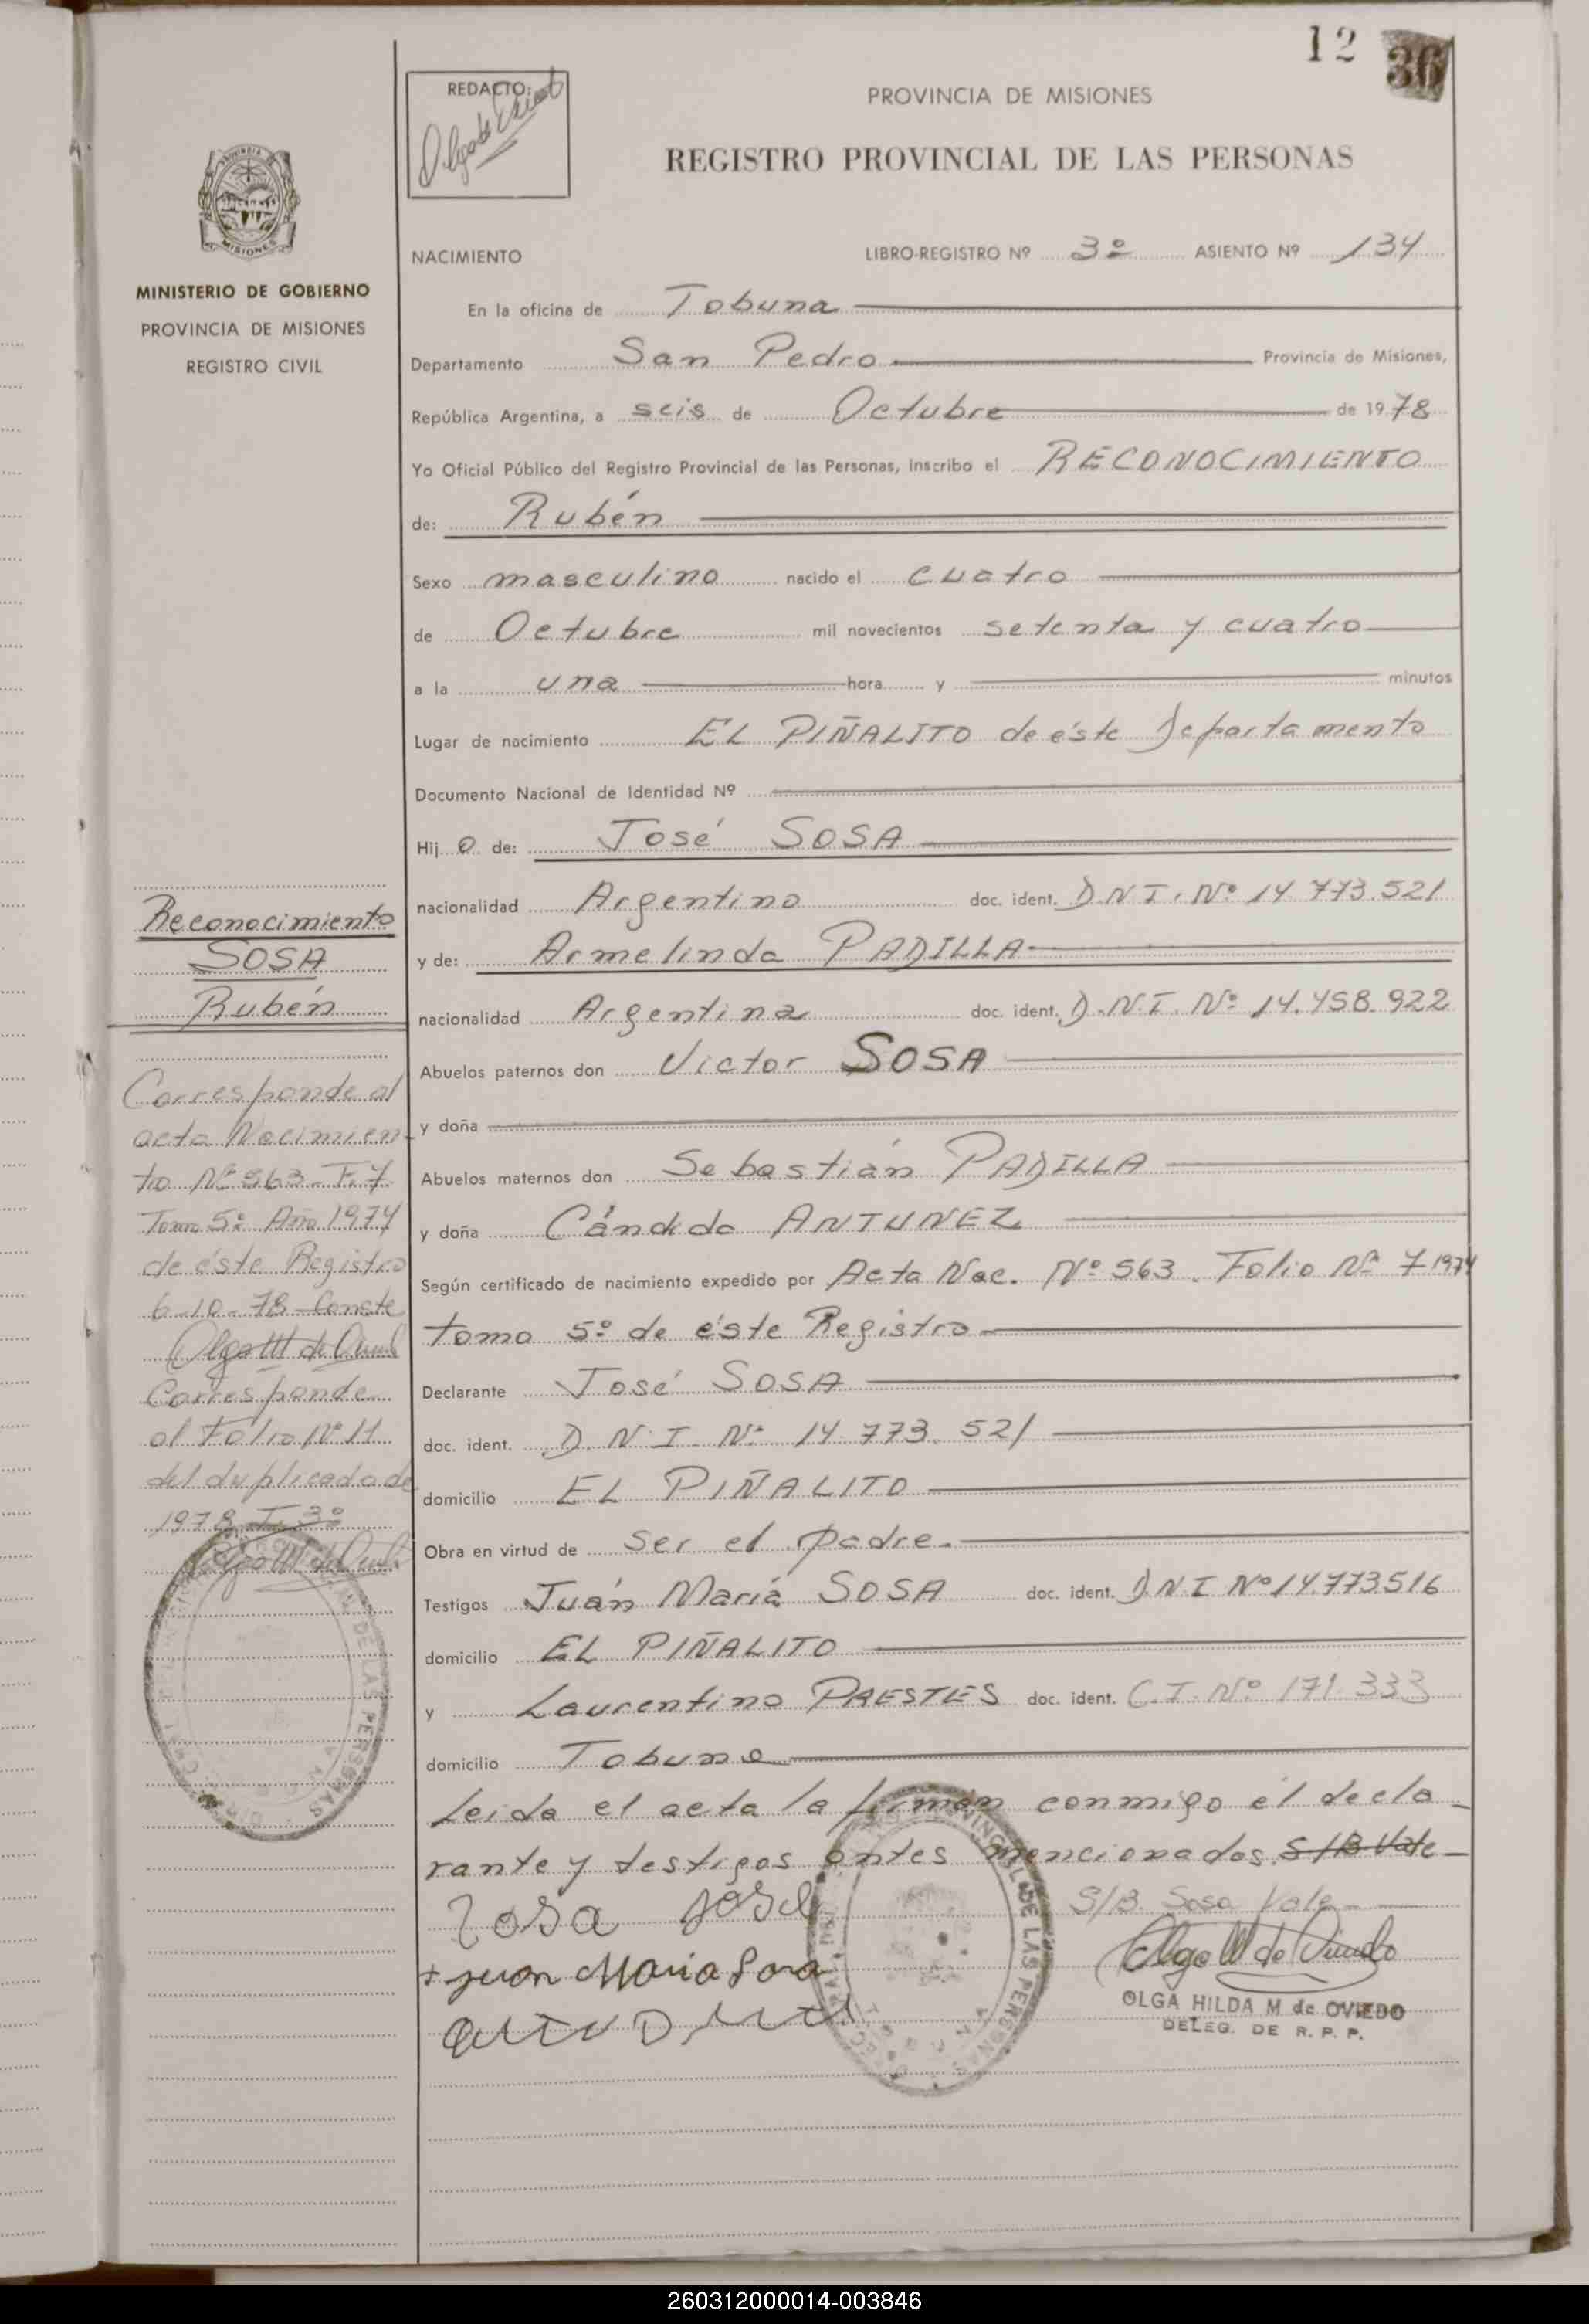 12 36
REDACTO:
PROVINCIA DE MISIONES
REGISTRO PROVINCIAL DE LAS PERSONAS
MISIONES
MINISTERIO DE GOBIERNO
PROVINCIA DE MISIONES
REGISTRO CIVIL
NACIMIENTO LIBRO-REGISTRO Nº 3º ASIENTO Nº 134
En la oficina de Tobuna
Departamento San Pedro Provincia de Misiones,
República Argentina, a seis de Octubre de 1978
Yo Oficial Público del Registro Provincial de las Personas, inscribo el RECONOCIMIENTO
de: Rubén
Sexo masculino nacido el cuatro
de Octubre mil novecientos setenta y cuatro
a la una hora y minutos
Lugar de nacimiento EL PIÑALITO de éste Departamento
Documento Nacional de Identidad Nº
Hijo de: José SOSA
nacionalidad Argentino doc. ident. D.N.I. Nº 14.773.521
y de: Armelinda PADILLA
nacionalidad Argentina doc. ident. D.N.I. Nº 14.458.922
Abuelos paternos don Victor SOSA
y doña
Abuelos maternos don Sebastián PADILLA
y doña Cándida ANTUNEZ
Según certificado de nacimiento expedido por Acta Nac. Nº 563. Folio Nº 7 1974
tomo 5º de éste Registro
Declarante José SOSA
doc. ident. D.N.I. Nº 14.773.521
domicilio EL PIÑALITO
Obra en virtud de ser el padre.
Testigos Juán María SOSA doc. ident. D.N.I Nº 14.773516
domicilio EL PIÑALITO
y Laurentino PRESTES doc. ident. C.I. Nº 171.333
domicilio Tobuna
Leida el acta la firman conmigo él decla-
rante y testigos antes mencionados. S/B Vale
S/B Sosa Vale
Sosa José
+ Juan Maria Sosa
OLGA HILDA M de OVIEDO
DELEG. DE R. P. P.
Reconocimiento
SOSA
Rubén
Corresponde al
acta Nacimien-
to Nº 563-F.7
Tomo 5º Año 1974
de éste Registro
6-10-78-Conste
Olga M de Oviedo
Corresponde
al Fólio Nº 11
del duplicado de
1978 T. 3º
Olga M de Oviedo
DE LAS PERSONAS
260312000014-003846